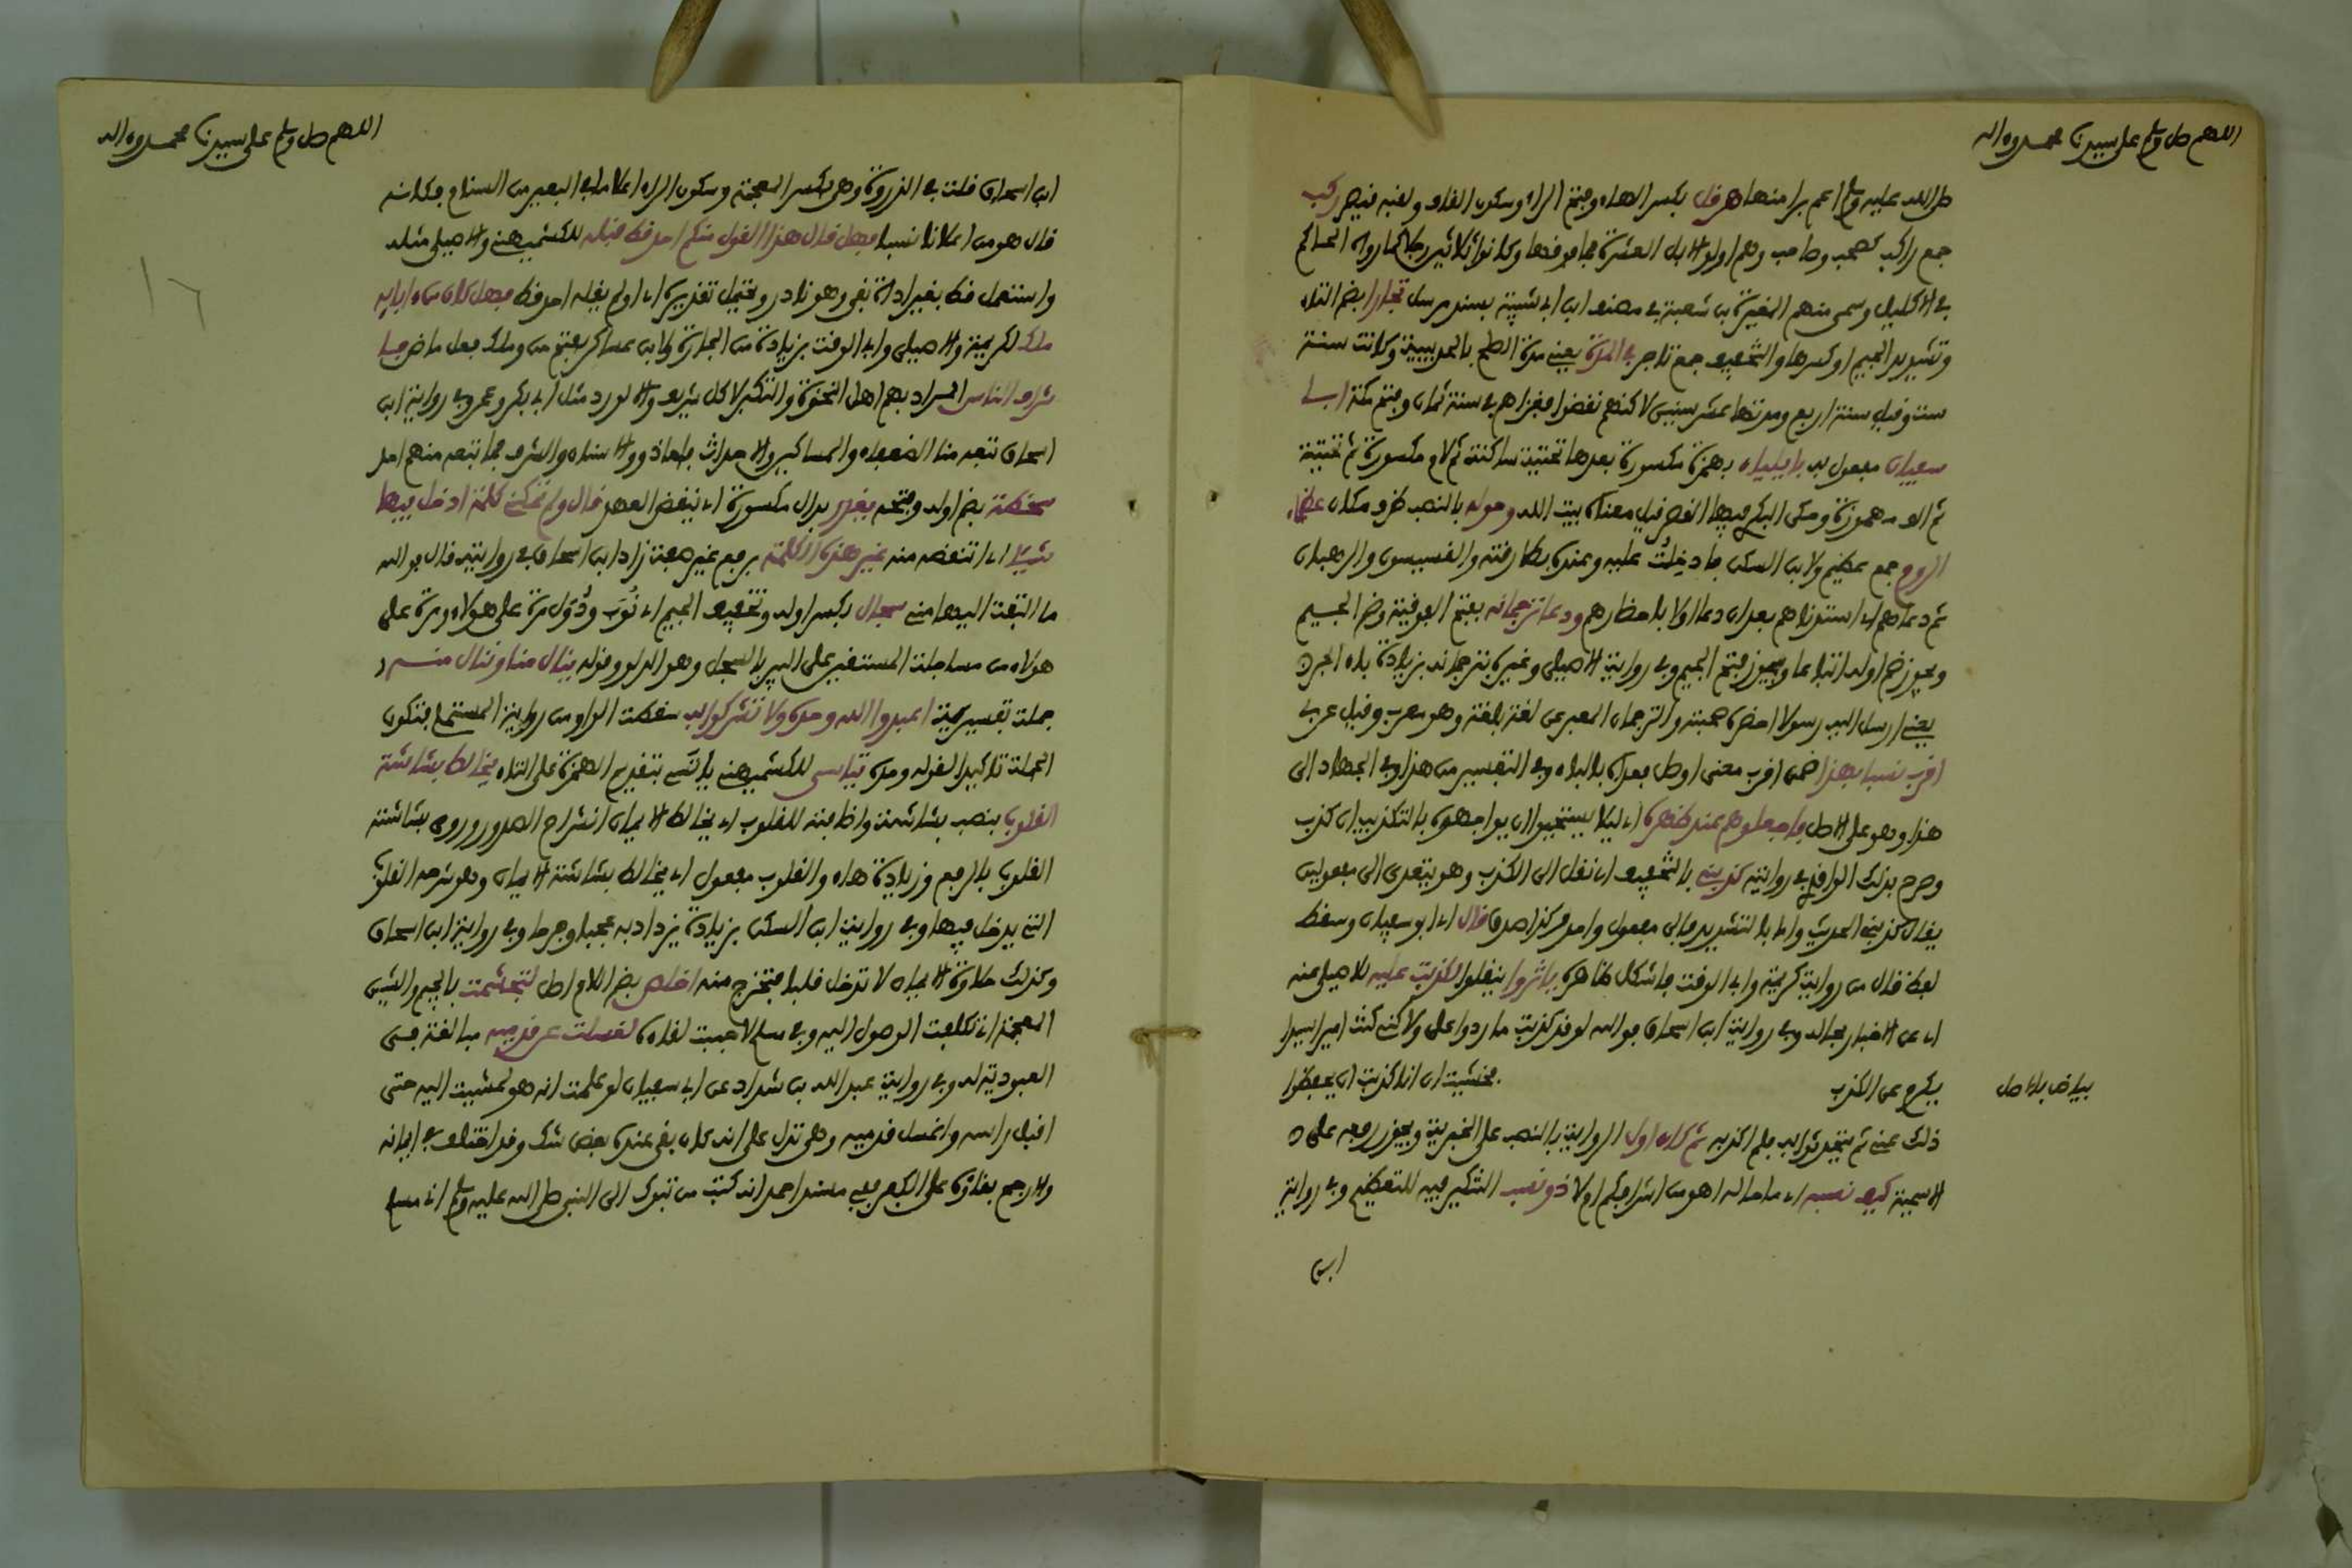 اللهم صل وسلم على سيدنا محمد وءاله
صلى الله عليه وسلم اعم برا منها هرقل بكسر الهاء وفتح الراء وسكون القاف ولقبه قيصر ركب
جمع راكب كصحب وصاحب وهم اولو الابل العشرة فما فوقها وكانوا ثلاثين رجلا كما رواه الحاكم
في الاكليل وسمى منهم المغيرة بن شعبة في مصنف ابن ابي شيبة بسند مرسل تجارا بضم التاء
وتشديد الجيم او كسرها والتخفيف جمع تاجر في المدة يعني مدة الصلح بالحديبية وكانت سنة
ست وقيل سنة اربع ومدتها عشر سنين لاكنهم نقضوا فغزاهم سنة ثمان وفتح مكة ابا
سفيان مفعول به بايلياء بهمزة مكسورة بعدها تحتية ساكنة ثم لام مكسورة ثم تحتية
ثم الف مهموزة وحكى البكري فيها القصر قيل معناه بيت الله وحوله بالنصب ظرف مكان عظماء
الروم جمع عظيم ولابن السكن فادخلت عليه وعنده بطارقته والقسيسون والرهبان
ثم دعاهم اي استدناهم بعد ان دعا اولا باحضارهم ودعا ترجمانه بفتح الفوقية وضم الجيم
ويجوز ضم اوله اتباعا ويجوز فتح الجيم وفي رواية الاصيلي وغيره بترجمانه بزيادة باء الجر
يعني ارسل اليه رسولا احضره صحبته والترجمان المعبر عن لغة بلغة وهو معرب وقيل عربي
اقرب نسبا بهذا ضمن اقرب معنى اوصل بعداه بالباء وفي التفسير من هذا وفي الجهاد الى
هذا وهو على الاصل فاجعلوهم عند ظهره اي ليلا يستحيوا ان يواجهوه بالتكذيب ان كذب
وصرح بذلك الواقدي في روايته كذبني بالتخفيف اي نقل الى الكذب وهو يتعدى الى مفعولين
يقال كذبني الحديث واما بالتشديد فالى مفعول واحد كذا هو قال اي ابو سفيان وسقط
لفظ قال من رواية كريمة وابي الوقت فاشكل ظاهره ياثروا ينقلوا لكذبت عليه للاصيلي عنه
اي عن الاخبار بحاله وفي رواية ابن اسحاق فوالله لو قد كذبت ما ردوا علي ولاكني كنت اميرا سيدا
يتكرم عن الكذب فخشيت ان انا كذبت ان يحفظوا
بياض بالاصل
ذلك عني ثم يتحدثوا به فلم اكذبه ثم كان اول الرواية بالنصب على الخبرية ويجوز رفعه على
الاسمية كيف نسبه اي ما حاله اهو من اشرافكم اولا ذو نسب التنكير فيه للتعظيم وفي رواية
ابن
اللهم صل وسلم على سيدنا محمد وءاله
١٦
ابن اسحاق قلت في الذروة وهي بكسر المعجمة وسكون الراء اعلا ما في البعير من السنام فكانه
قال هو من اعلانا نسبا فهل قال هذا القول منكم احد قط قبله للكشميهني والاصيلي مثله
واستعمل قط بغير اداة نفي وهو نادر ويحتمل تقديره اي اولم يقله احد قط فهل كان من ءابايه
ملك لكريمة والاصيلي وابي الوقت بزيادة من الجارة ولابن عساكر بفتح من وملك فعل ماض فيا
شراف الناس المراد بهم اهل النخوة والتكبر لا كل شريف والا لورد مثل ابي بكر وعمر وفي رواية ابن
اسحاق تبعه منا الضعفاء والمساكين والاحداث فاما ذوو الانساب والشرف فما تبعه منهم احد
سخطة بضم اوله وفتحه يغدر بدال مكسورة اي ينقض العهد قال ولم تمكني كلمة ادخل فيها
شيئا اي انتقصه منه غير هذه الكلمة برفع غير صفة زاد ابن اسحاق في روايته قال فوالله
ما التفت اليها مني سجال بكسر اوله وتخفيف الجيم اي نُوَب ودُوَل مرة على هولاء ومرة على
هولاء من مساجلة المستقين على البير بالسجل وهو الدلو وقوله ينال منا وننال منه
جملة تفسيرية اعبدوا الله وحده ولا تشركوا به سقطت الواو من رواية المستملي فتكون
الجملة تاكيدا لقوله وحده يتاسى للكشميهني يأتسي بتقديم الهمزة على التاء يخالط بشاشته
القلوب بنصب بشاشته واضافته للقلوب اي يخالط الايمان انشراح الصدور وروي بشاشته
القلوب بالرفع وزيادة هاء والقلوب مفعول اي يخالط بشاشة الايمان وهو شرحه القلوب
التي يدخل فيها وفي رواية ابن السكن بزيادة يزداد به عجبا وفرحا وفي رواية ابن اسحاق
وكذلك حلاوة الايمان لا تدخل قلبا فتخرج منه اخلص بضم اللام اصل لتجشمت بالجيم والشين
المعجمة اي تكلفت الوصول اليه وفي مسلم لاحببت لقاءه لغسلت عن قدميه مبالغة في
العبودية له وفي رواية عبد الله بن شداد عن ابي سفيان لو علمت انه هو لمشيت اليه حتى
اقبل راسه واغسل قدميه وهي تدل على انه كان بقي عنده بعض شك وقد اختلف في ايمانه
والارجح بقاؤه على الكفر ففي مسند احمد انه كتب من تبوك الى النبي صلى الله عليه وسلم اني مسلم